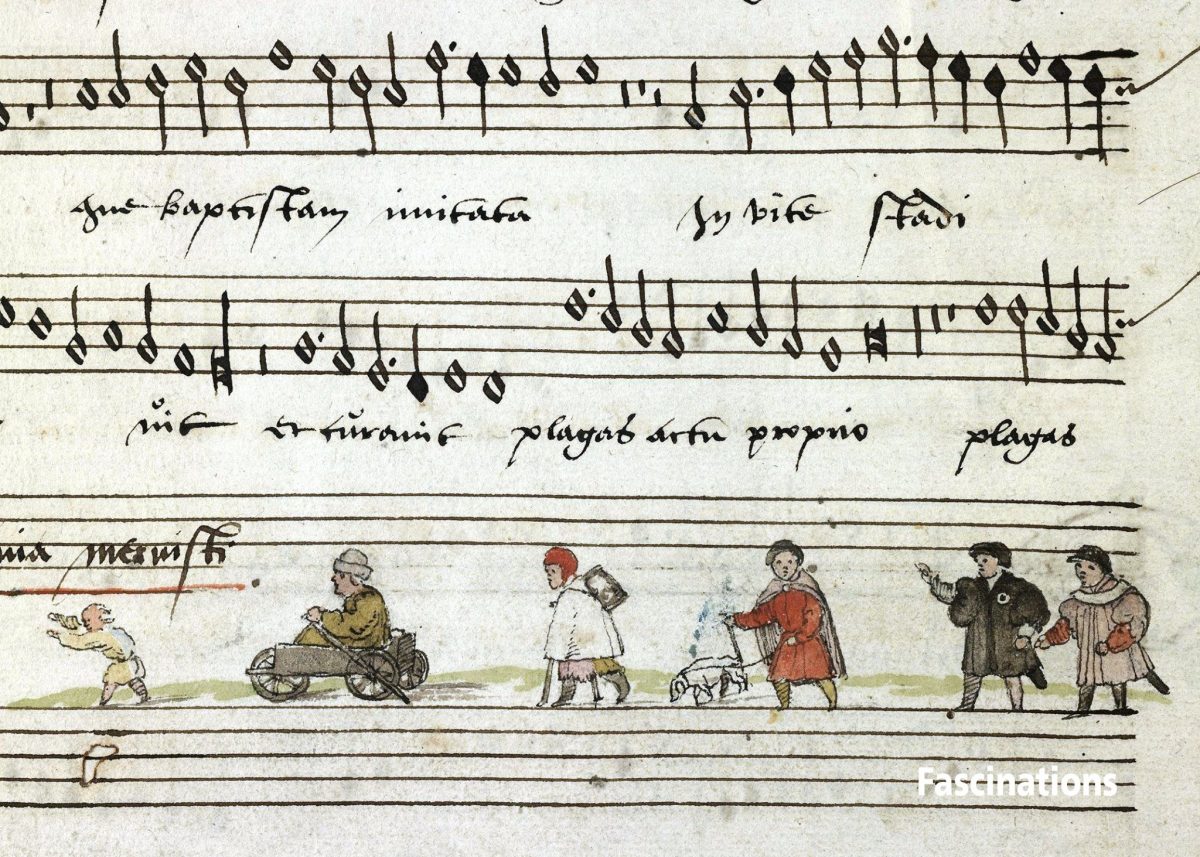 que baptistam imitata In vite stadi
uit et curauit plagas actu proprio plagas
meruisti
Fascinations